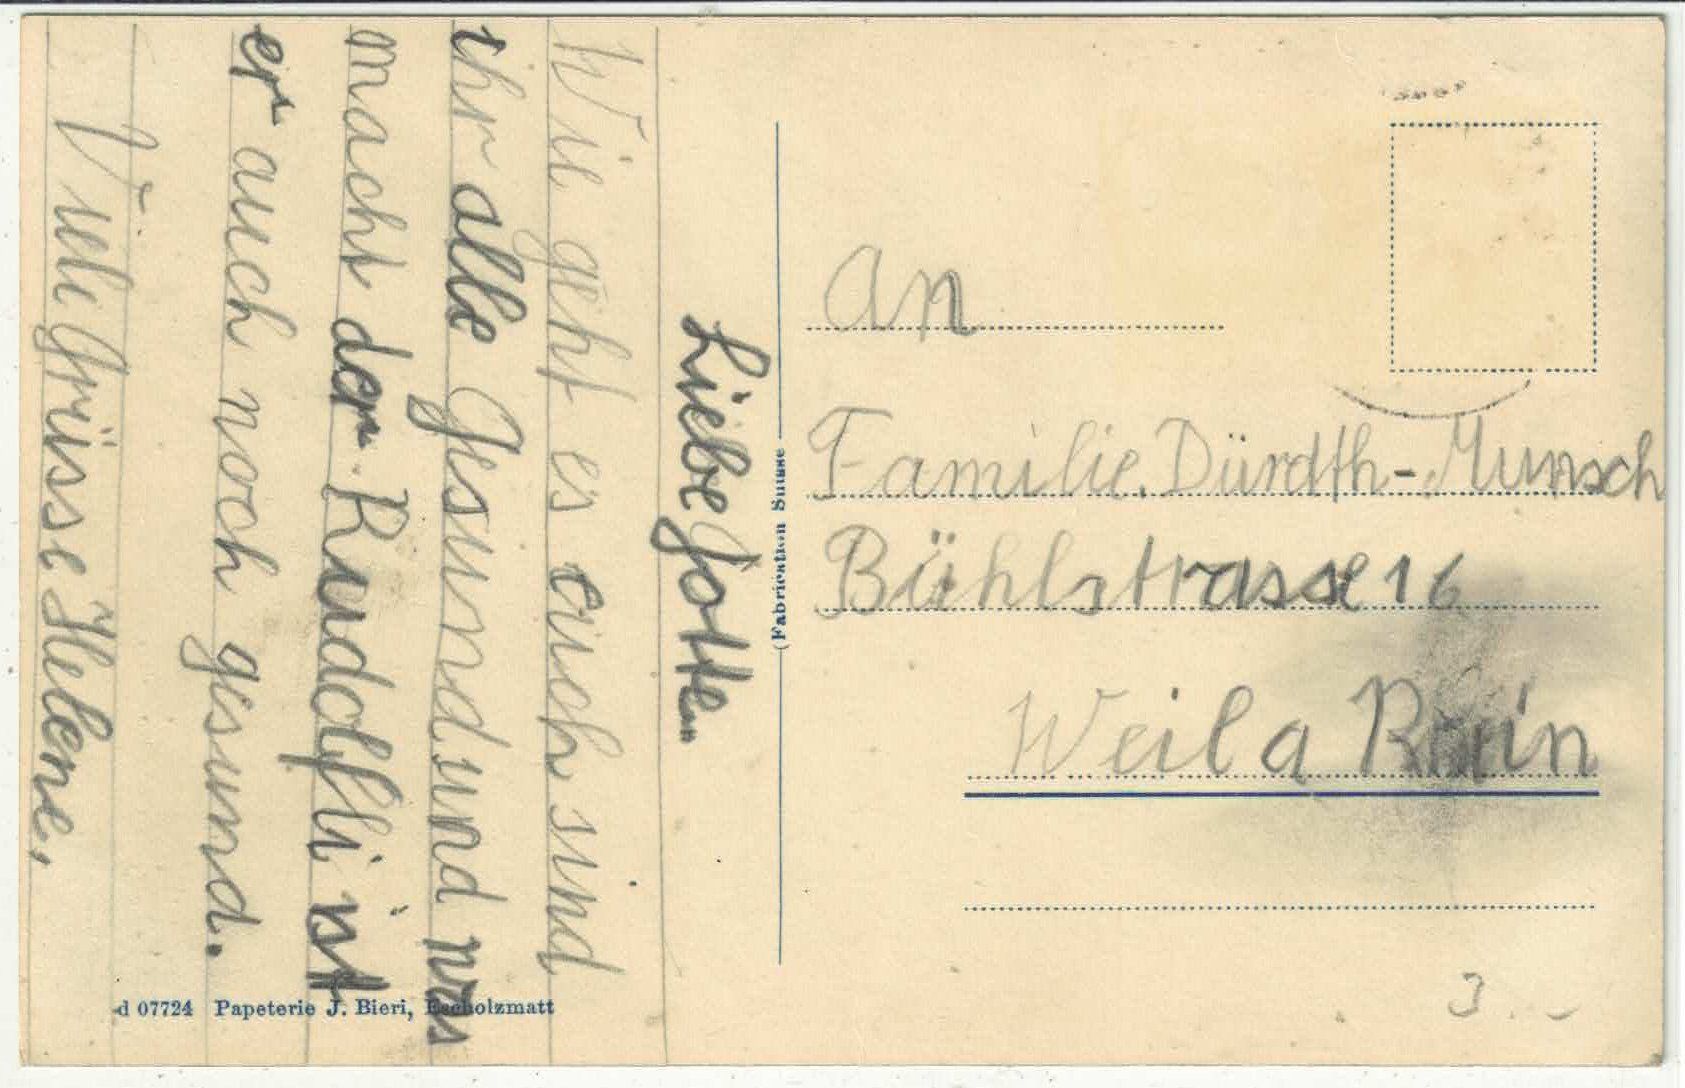 Liebe Gotte
Wie geht es euch sind
ihr alle Gesund und was
macht der Rudolfli ist
er auch noch gesund.
Viele Grüsse Helene,
(Fabrication Suisse
An
Familie Dürdth-Munsch
Bühlstrasse 16
Weil a Rhein
d 07724 Papeterie J. Bieri, Escholzmatt